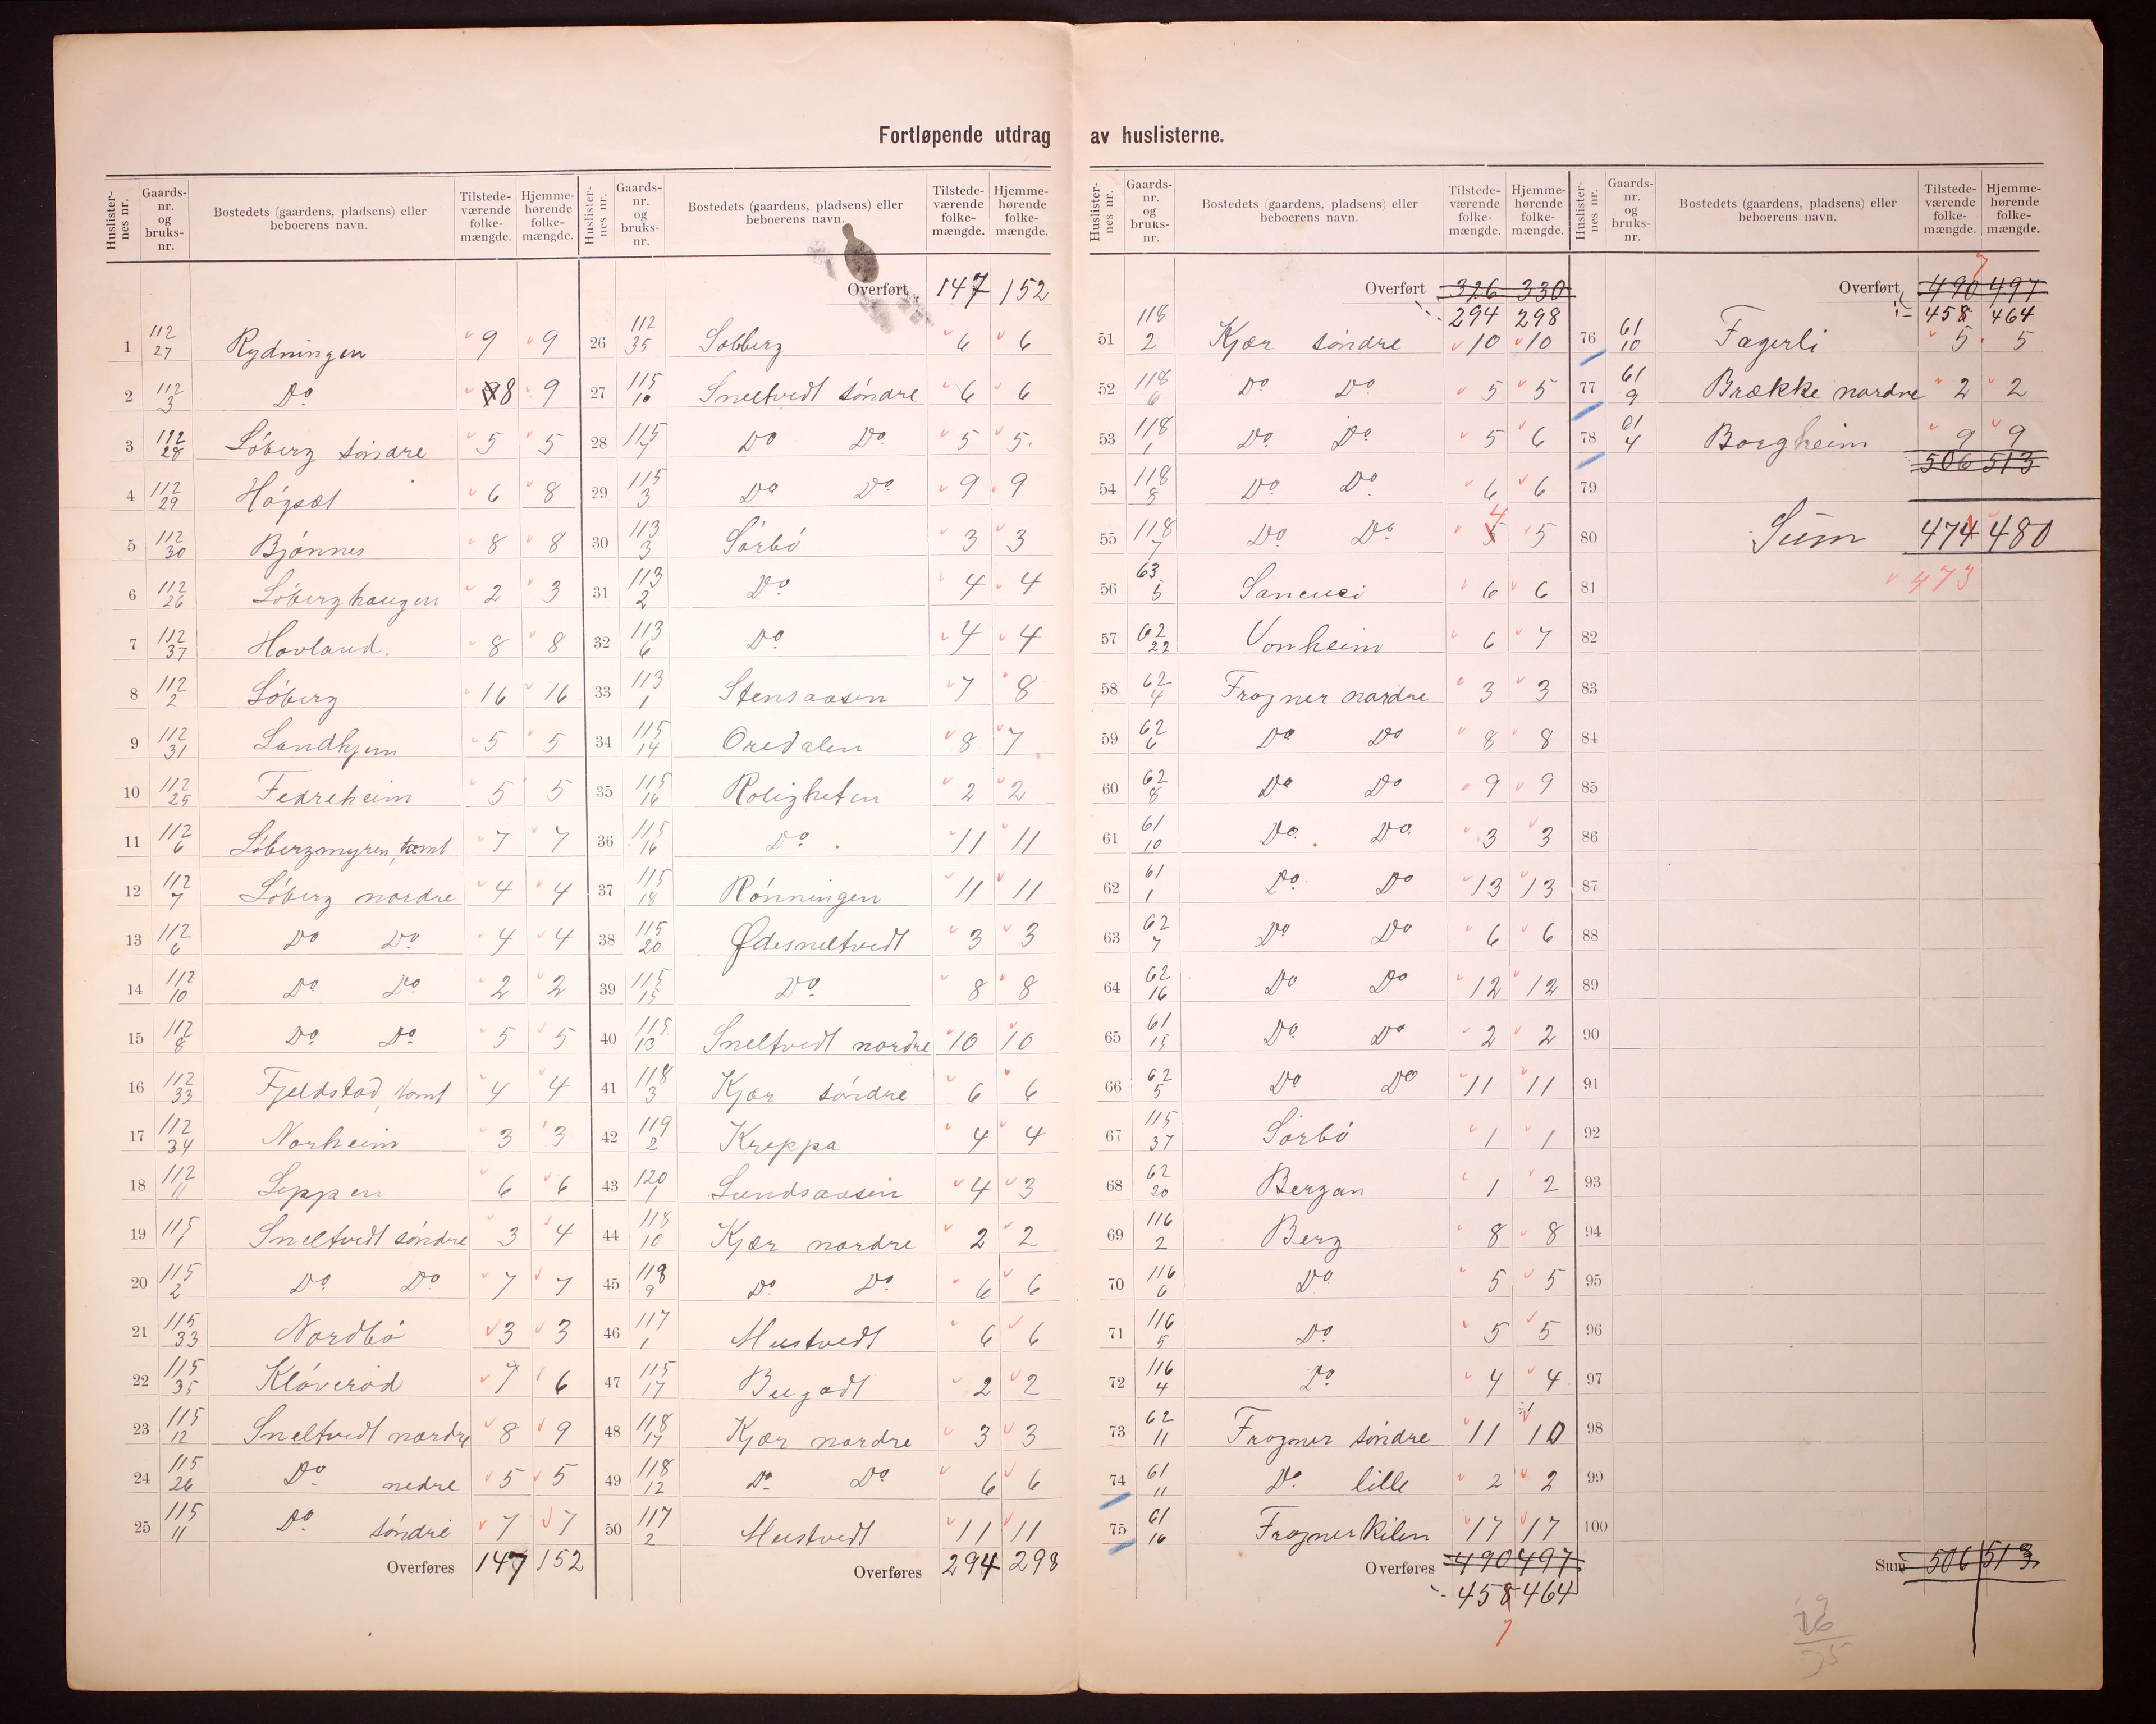 Fortløpende utdrag av huslisterne.
Huslister-nes nr. Gaards-nr. og bruks-nr. Bostedets (gaardens, pladsens) eller beboerens navn. Tilstede-værende folke-mængde. Hjemme-hørende folke-mængde.
1 112/27 Rydningen 9 9
2 112/3 Do 8 9
3 112/28 Söberg söndre 5 5
4 112/29 Högsæt 6 8
5 112/30 Bjönnes 8 8
6 112/26 Söberghaugen 2 3
7 112/37 Hovland. 8 8
8 112/2 Söberg 16 16
9 112/31 Sandhjem 5 5
10 112/25 Fedreheim 5 5
11 112/6 Söbergmyren, tomt 7 7
12 112/7 Söberg nordre 4 4
13 112/6 Do Do 4 4
14 112/10 Do Do 2 2
15 112/8 Do Do 5 5
16 112/33 Fjeldstad, tomt 4 4
17 112/34 Norheim 3 3
18 112/11 Seppen 6 6
19 115/1 Sneltvedt söndre 3 4
20 115/2 Do Do 7 7
21 115/33 Nordbö 3 3
22 115/35 Kløveröd 7 6
23 115/12 Sneltvedt nordre 8 9
24 115/26 Do nedre 5 5
25 115/11 Do söndre 7 7
Overføres 147 152
Huslister-nes nr. Gaards-nr. og bruks-nr. Bostedets (gaardens, pladsens) eller beboerens navn. Tilstede-værende folke-mængde. Hjemme-hørende folke-mængde.
Overført 147 152
26 112/35 Solberg 6 6
27 115/10 Sneltvedt söndre 6 6
28 115/7 Do Do 5 5.
29 115/3 Do Do 9 9
30 113/3 Sörbö 3 3
31 113/2 Do 4 4
32 113/6 Do 4 4
33 113/1 Stensaasen 7 8
34 115/14 Oredalen 8 7
35 115/16 Roligheten 2 2
36 115/16 Do. 11 11
37 115/18 Rönningen 11 11
38 115/20 Ødesneltvedt 3 3
39 115/15 Do 8 8
40 115/13 Sneltvedt nordre 10 10
41 118/3 Kjær söndre 6 6
42 119/2 Kreppa 4 4
43 120/1 Sundsaasen 4 3
44 118/10 Kjær nordre 2 2
45 118/9 Do Do 6 6
46 117/1 Mustvedt 6 6
47 115/17 2 2
48 118/17 Kjær nordre 3 3
49 118/12 Do Do 6 6
50 117/2 Mustvedt 11 11
Overføres 294 298
Huslister-nes nr. Gaards-nr. og bruks-nr. Bostedets (gaardens, pladsens) eller beboerens navn. Tilstede-værende folke-mængde. Hjemme-hørende folke-mængde.
Overført 326 330
294 298
51 118/2 Kjær söndre 10 10
52 118/6 Do Do 5 5
53 118/1 Do Do 5 6
54 118/8 Do Do 6 6
55 118/7 Do Do 5 4 5
56 63/5 Sancuci 6 6
57 62/22 Vonheim 6 7
58 62/4 Frogner nordre 3 3
59 62/6 Do Do 8 8
60 62/8 Do Do 9 9
61 61/10 Do. Do 3 3
62 61/1 Do Do 13 13
63 62/7 Do Do 6 6
64 62/16 Do Do 12 12
65 61/15 Do Do 2 2
66 62/5 Do Do 11 11
67 115/37 Sörbö 1 1
68 62/20 Bergan 1 2
69 116/2 Berg 8 8
70 116/6 Do 5 5
71 116/5 Do 5 5
72 116/4 Do 4 4
73 62/11 Frogner söndre 11 10
74 61/11 Do lille 2 2
75 61/16 Frognerkilen 17 17
Overføres 490 497
458 464
7
Huslister-nes nr. Gaards-nr. og bruks-nr. Bostedets (gaardens, pladsens) eller beboerens navn. Tilstede-værende folke-mængde. Hjemme-hørende folke-mængde.
7
Overført 490 497
458 464
76 61/10 Fagerli 5 5
77 61/9 Brække nordre 2 2
78 61/4 Borgheim 9 9
506 513
79
80 Sum 474 480
81 473
82
83
84
85
86
87
88
89
90
91
92
93
94
95
96
97
98
99
100
Sum 506 513